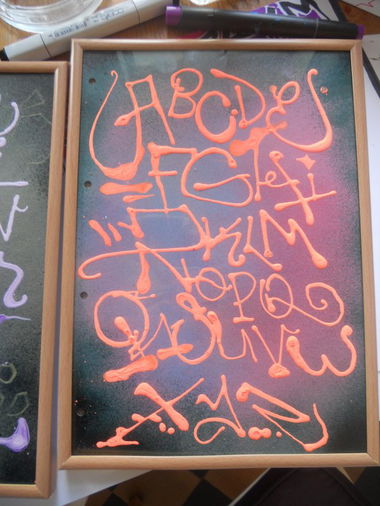 ABCDE
FGHI
JKLM
NOPQ
RSTUVW
XYZ